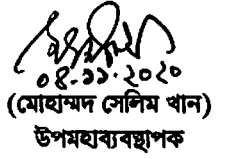 ০৪.১১.২০২০
(মোহাম্মদ সেলিম খান)
উপমহাব্যবস্থাপক